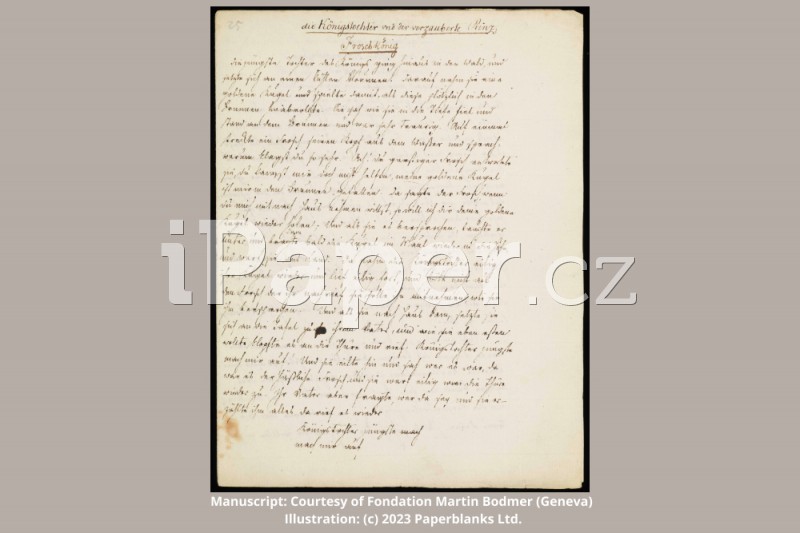 25
die Königstochter und der verzauberte Prinz.
Froschkönig
Die jüngste Tochter des Königs ging hinaus in den Wald, und
setzte sich an einen kühlen Brunnen. Darauf nahm sie eine
goldene Kugel und spielte damit, als diese plötzlich in den
Brunnen hinabrollte. Sie sah wie sie in die Tiefe fiel und
stand an dem Brunnen und war sehr traurig. Auf einmal
streckte ein Frosch seinen Kopf aus dem Wasser und sprach:
warum klagst du so sehr. Ach! du garstiger Frosch antwortete
sie, du kannst mir doch nicht helfen, meine goldene Kugel
ist mir in den Brunnen gefallen. Da sagte der Frosch wenn
du mich mit nach Haus nehmen willst, so will ich dir deine goldene
Kugel wieder holen. Und als sie es versprochen, tauchte er
unter und kam bald die Kugel im Maul wieder in die Höh
iPaper.cz
den Frosch der ihr nachrief sie sollte ihn mitnehmen wie sie
ihm versprochen. Und als sie nach Haus kam, setzte sie
sich an die Tafel zu ihrem Vater, und wie sie eben essen
wollte klopfte es an die Thüre und rief: Königstochter jüngste
mach mir auf. Und sie eilte hin und sah wer es war, da
war es der häßliche Frosch und sie warf eilig wieder die Thüre
zu. Ihr Vater aber fragte, wer da sey und sie er-
zählte ihm alles. da rief es wieder
Königstochter jüngste
mach mir auf
Manuscript: Courtesy of Fondation Martin Bodmer (Geneva)
Illustration: (c) 2023 Paperblanks Ltd.